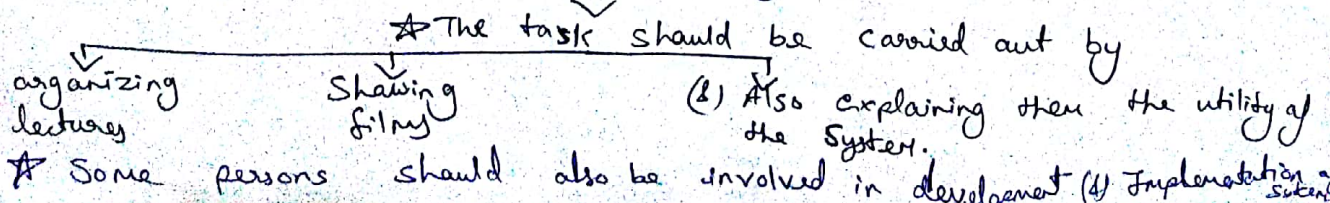 ☆ The task should be carried out by
organizing lectures
Showing films
(&) Also explaining them the utility of the System.
☆ Some persons should also be involved in development (&) Implementation